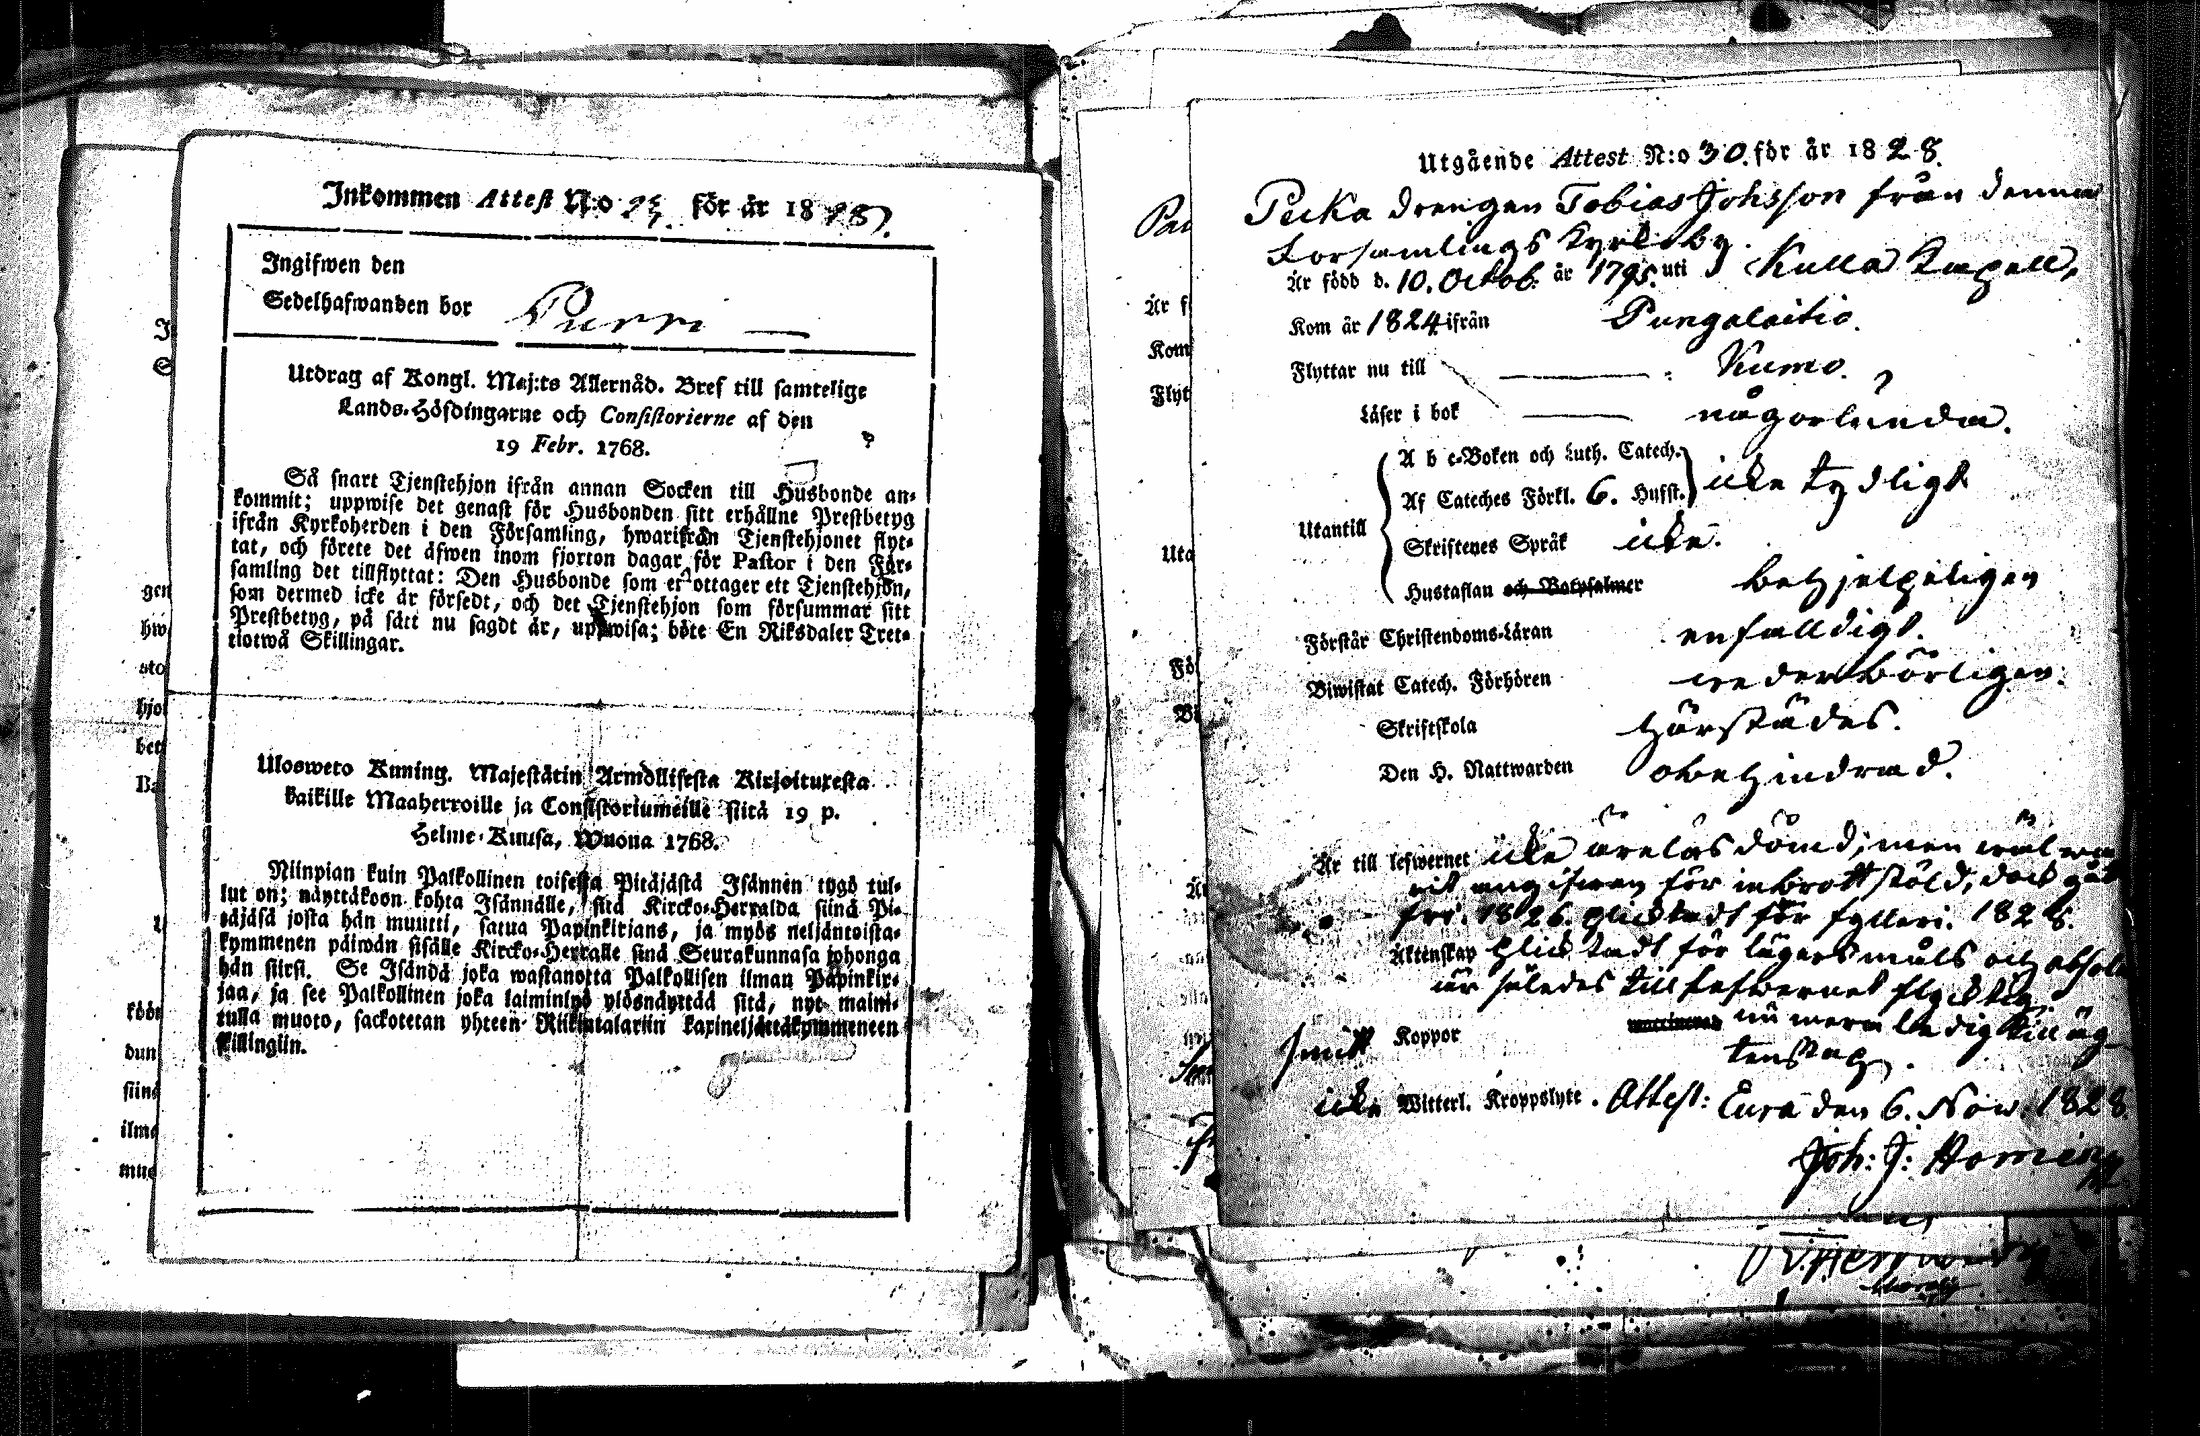 Inkommen Attest N:o 25. för år 1828.
Ingifwen den
Sedelhafwanden bor Purri
Utdrag af Kongl. Maj:ts Allernåd. Bref till samtelige
Lands-Höfdingarne och Consistorierne af den
19 Febr. 1768.
Så snart Tjenstehjon ifrån annan Socken till Husbonde an-
kommit; uppwise det genast för Husbonden sitt erhållne Prestbetyg
ifrån Kyrkoherden i den Församling, hwarifrån Tjenstehjonet flyt-
tat, och förete det äfwen inom fjorton dagar för Pastor i den För-
samling det tillflyttat: Den Husbonde som emottager ett Tjenstehjon,
som dermed icke är försedt, och det Tjenstehjon som försummar sitt
Prestbetyg, på sätt nu sagdt är, uppwisa; böte En Riksdaler Tret-
tiotwå Skillingar.
Ulosweto Kuning. Majestätin Armollisesta Kirjoituxesta
kaikille Maaherroille ja Consistoriumeille siitä 19 p.
Helme-Kuusa, Wuona 1768.
Niinpian kuin Palkollinen toisesta Pitäjästä Isännen tygö tul-
lut on; näyttäköön kohta Isännälle, sitä Kircko-Herralda siinä Pi-
täjäsä josta hän muutti, saatua Papinkirjans, ja myös neljäntoista-
kymmenen päiwän sisälle Kircko-Herralle sinä Seurakunnasa johonga
hän siirsi. Se Isändä joka wastanotta Palkollisen ilman Papinkir-
jaa, ja see Palkollinen joka laiminlyö ylösnäyttää sitä, nyt maini-
tulla muoto, sackotetan yhteen Riikintalariin kaxineljättäkymmeneen
skillingiin.
Utgående Attest N:o 30. för år 1828.
Pecka drengen Tobias Johsson från denna
Församlings Kyrkoby.
Är född d. 10. Octob. år 1795. uti Kulla Kapell,
Kom år 1824 ifrån Pungalaitio.
Flyttar nu till Kumo.
Läser i bok någorlunda.
Utantill
A b c-Boken och Luth. Catech.
Af Cateches Förkl. 6. Hufst. icke tydligt
Skriftenes Språk icke.
Hustaflan och Botpsalmer behjelpeligen
Förstår Christendoms-Läran enfaldigt.
Biwistat Catech. Förhören wederbörligen.
Skriftskola härstädes.
Den H. Nattwarden obehindrad.
Är till lefwernet icke ärelös dömd; men wäl
angifwen för inbrott stöld, dock
fri. 1826. plicktadt för fylleri. 182
Äktenskap plicktadt för lägersmåls och absol
är således till lefwernet
nu mera ledig till äg
tenskap.
smitt Koppor
icke Witterl. Kroppslyte. Attest: Eura den 6. Now. 1828.
Joh: J: